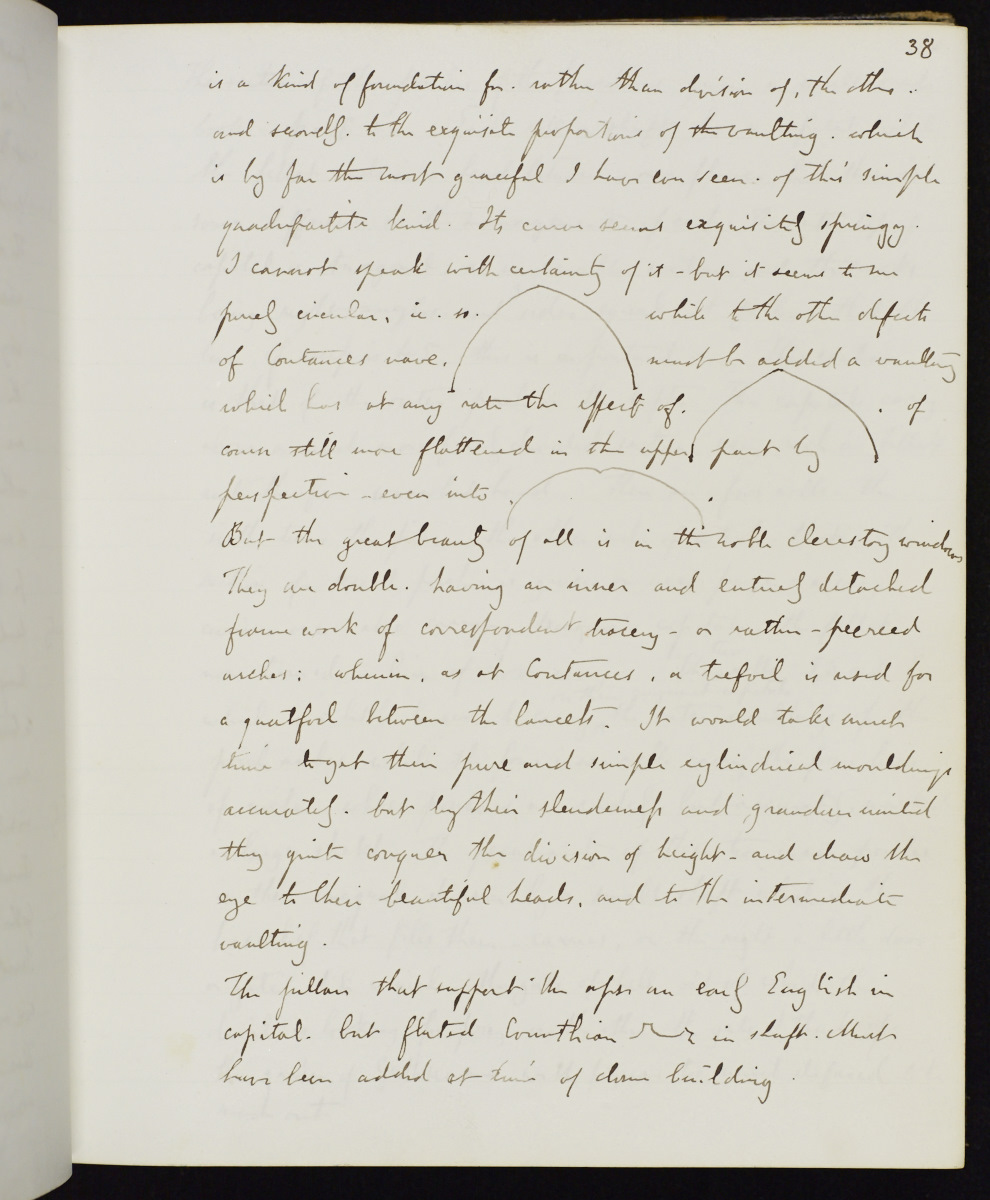 38
is a kind of foundation for. rather than division of, the other.
and secondly. to the exquisite proportions of the vaulting. which
is by far the most graceful I have ever seen. of this simple
quadripartite kind. Its curve seems exquisitely springy.
I cannot speak with certainty of it - but it seems to me
purely circular, ie. so. while to the other defects
of Coutances nave. must be added a vaulting
which has at any rate the effect of. . of
course still more flattened in the upper part by
perspective - even into .
But the great beauty of all is in the noble clerestory windows
They are double. having an inner and entirely detached
frame work of correspondent tracery - or rather - pierced
arches: wherein, as at Coutances, a trefoil is used for
a quatfoil between the lancets. It would take much
time to get their pure and simple cylindrical mouldings
accurately. but by their slenderness and grandeur united
they quite conquer the division of height - and draw the
eye to their beautiful heads, and to the intermediate
vaulting.
The pillars that support the apse are early English in
capital. but fluted Corinthian in shaft. Must
have been added at time of dome building.